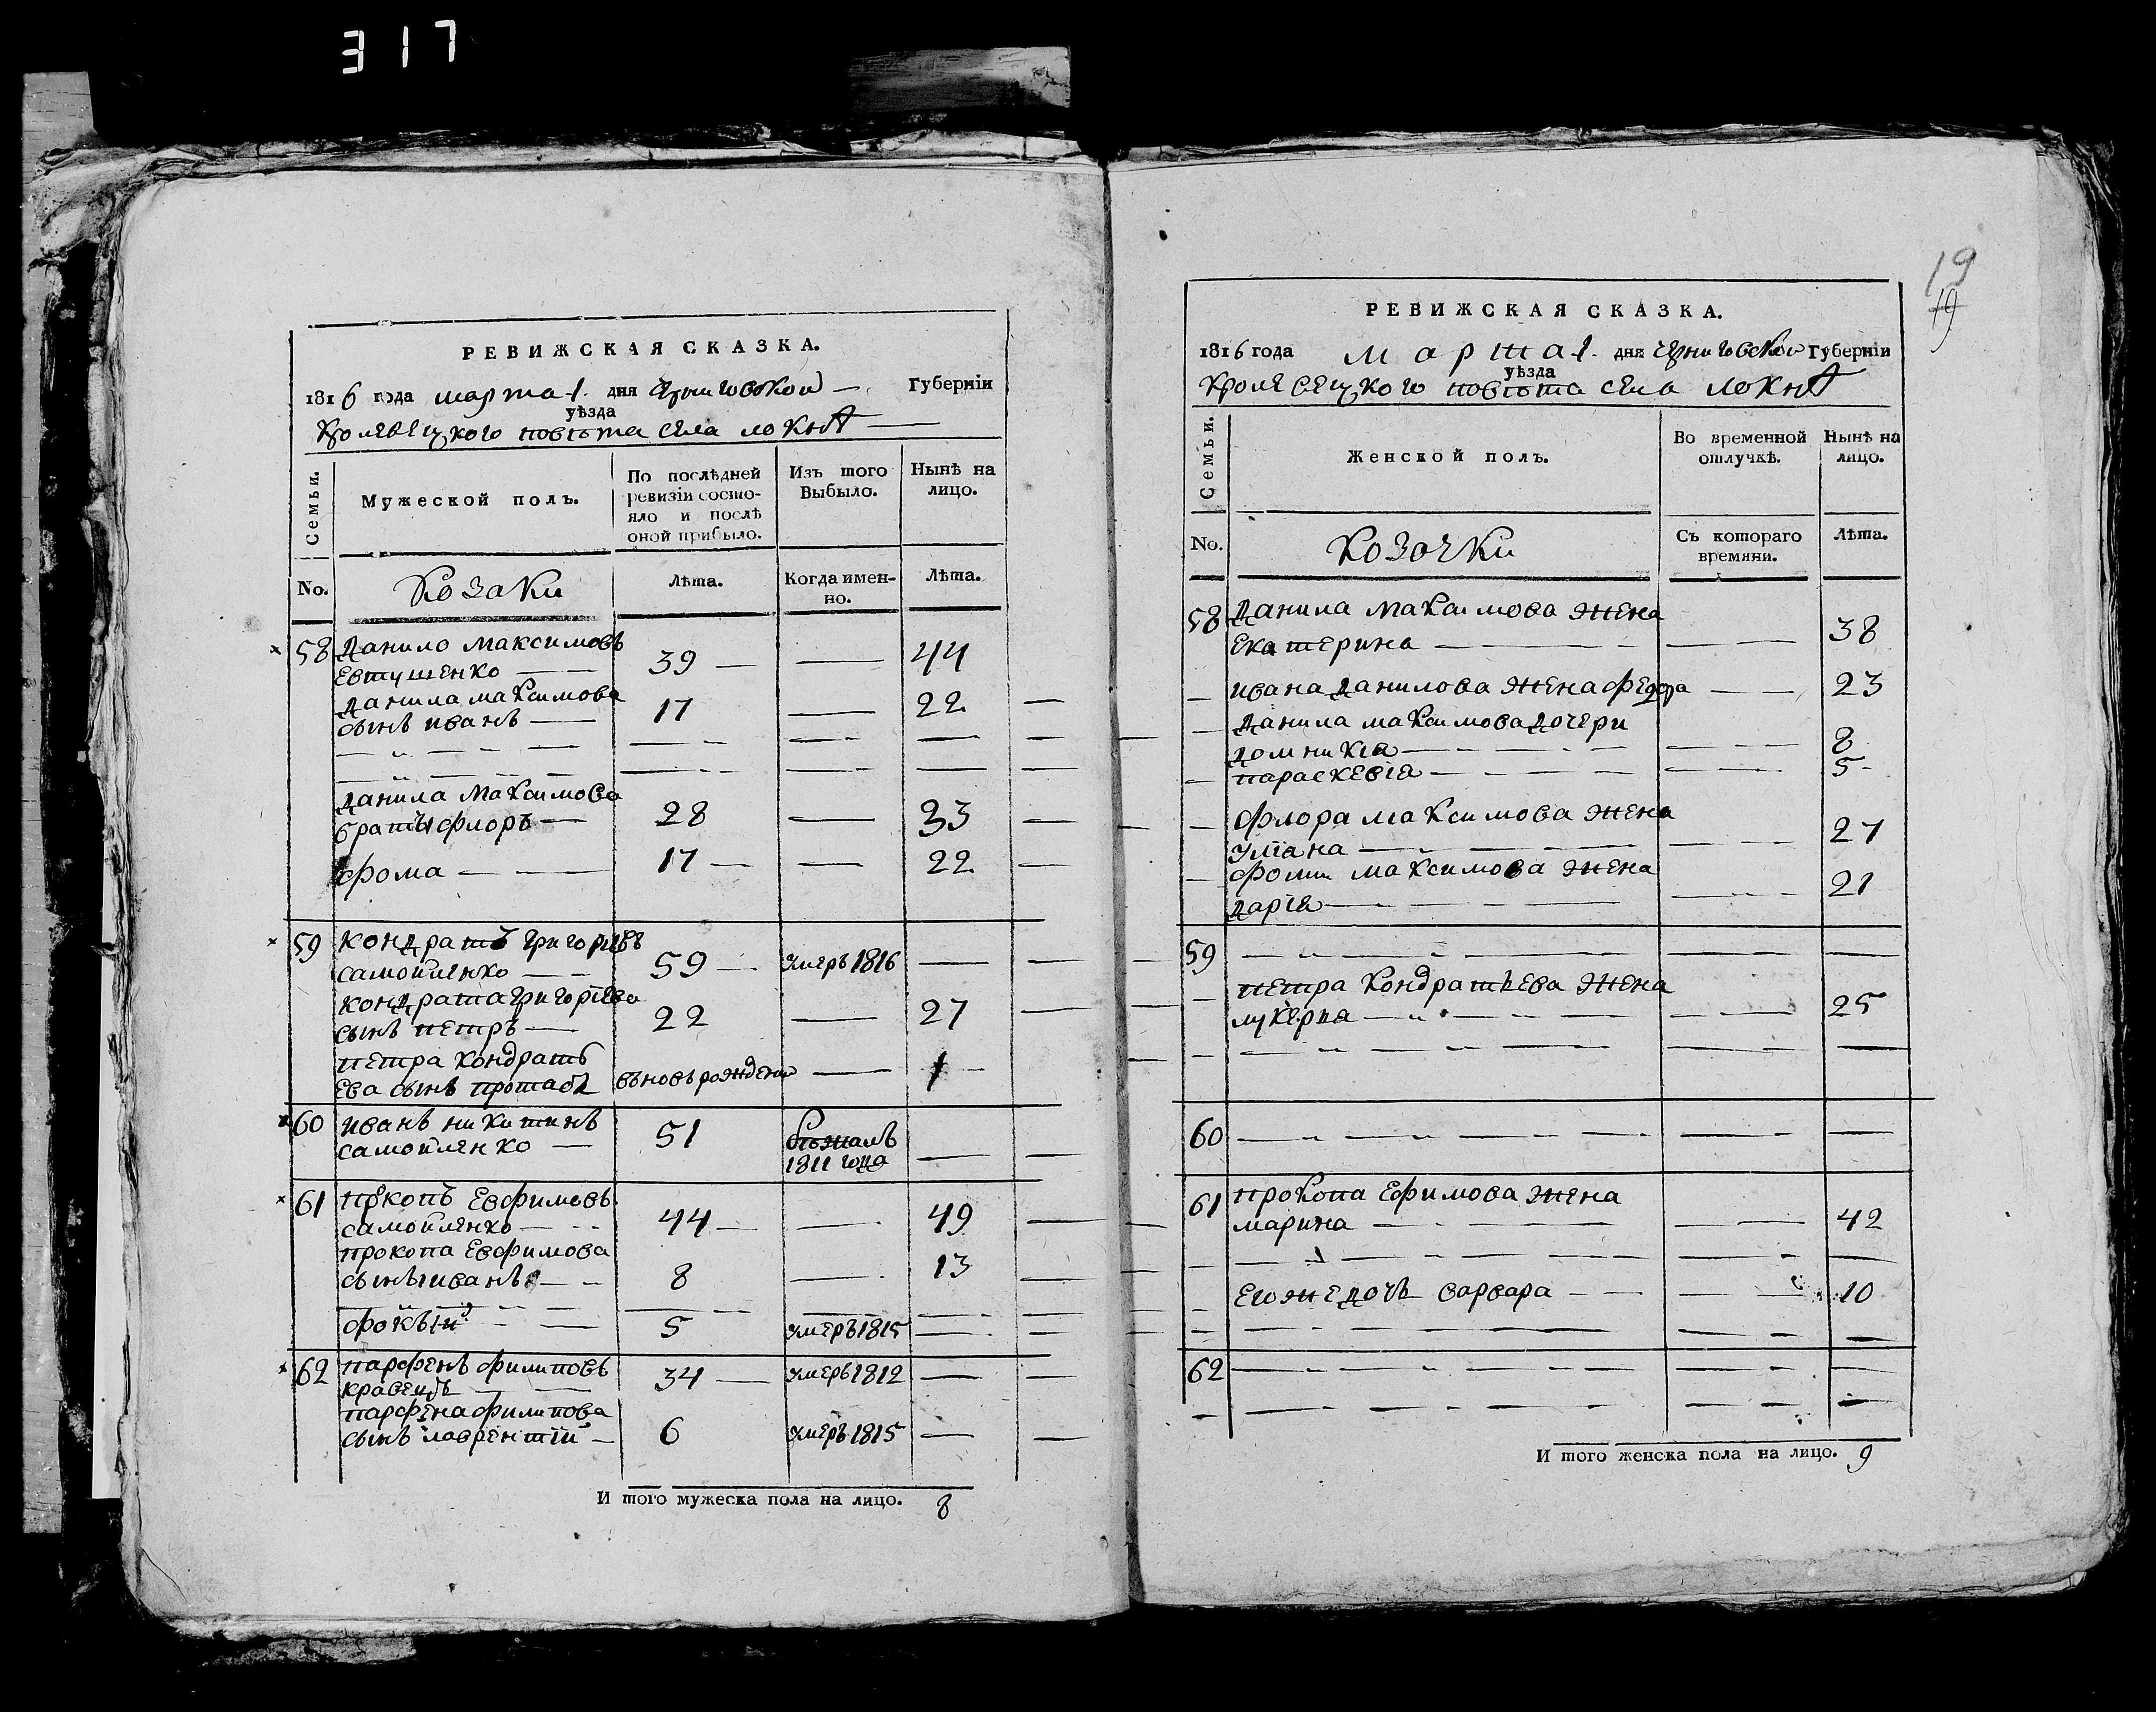 317
РЕВИЖСКАЯ СКАЗКА.
1816 года марта 1. дня Черниговской Губернїи
уѣзда
Кролевецкого повѣта села Локнѣ
Семьи.
Мужеской полъ.
По послѣдней ревизїи состояло и послѣ оной прибыло.
Изъ того Выбыло.
Нынѣ на лицо.
No.
Козаки
Лѣта.
Когда именно.
Лѣта.
58 Данило Максимовъ
Евтушенко 39 — — 44
Данила Максимова
сынъ Иванъ — 17 — 22
Данила Максимова
братья Флоръ — 28 — 33
Фома — 17 — — 22
59 Кондратъ Григориевъ
Самойленко — 59 — умеръ 1816 —
Кондрата Григорїева
сынъ Петръ — 22 — 27
Петра Кондрать
ева сынъ вновь рожденъ — 1
60 Иванъ Никитинъ
Самойленко — 51 бѣжалъ
1811 года —
61 Прокопъ Евфимовъ
Самойленко — 44 — — 49
Прокопа Евфимова
сынъ Иванъ — 8 — 13
5 умеръ 1815 —
62 Парфенъ Филиповъ
Кравецъ — 34 — умеръ 1812 —
Парфена Филипова
сынъ Лаврентїй — 6 умеръ 1815 —
И того мужеска пола на лицо. 8
19
19
РЕВИЖСКАЯ СКАЗКА.
1816 года марта 1. дня Черниговской Губернїи
уѣзда
Кролевецкого повѣта села Локнѣ
Семьи.
Женской полъ.
Во временной отлучкѣ.
Нынѣ на лицо.
No.
Козочки
Съ котораго времяни.
Лѣта.
58 Данила Максимова жена
Екатерина — — 38
Ивана Данилова жена Федора — 23
Данила Максимова дочери
Домникїа — — 8
Параскевїа — — 5
Флора Максимова жена
Улїана — — 27
Фоми Максимова жена
Дарїа — — 21
59 — — —
Петра Кондратьева жена
Лукерїа — — 25
60 — — —
61 Прокопа Ефимова жена
Марина — — 42
Его же дочь Варвара — — 10
62 — — —
И того женска пола на лицо. 9